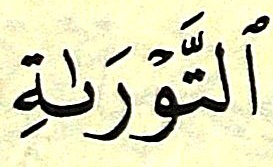 ٱلتَّوۡرَىٰةِ